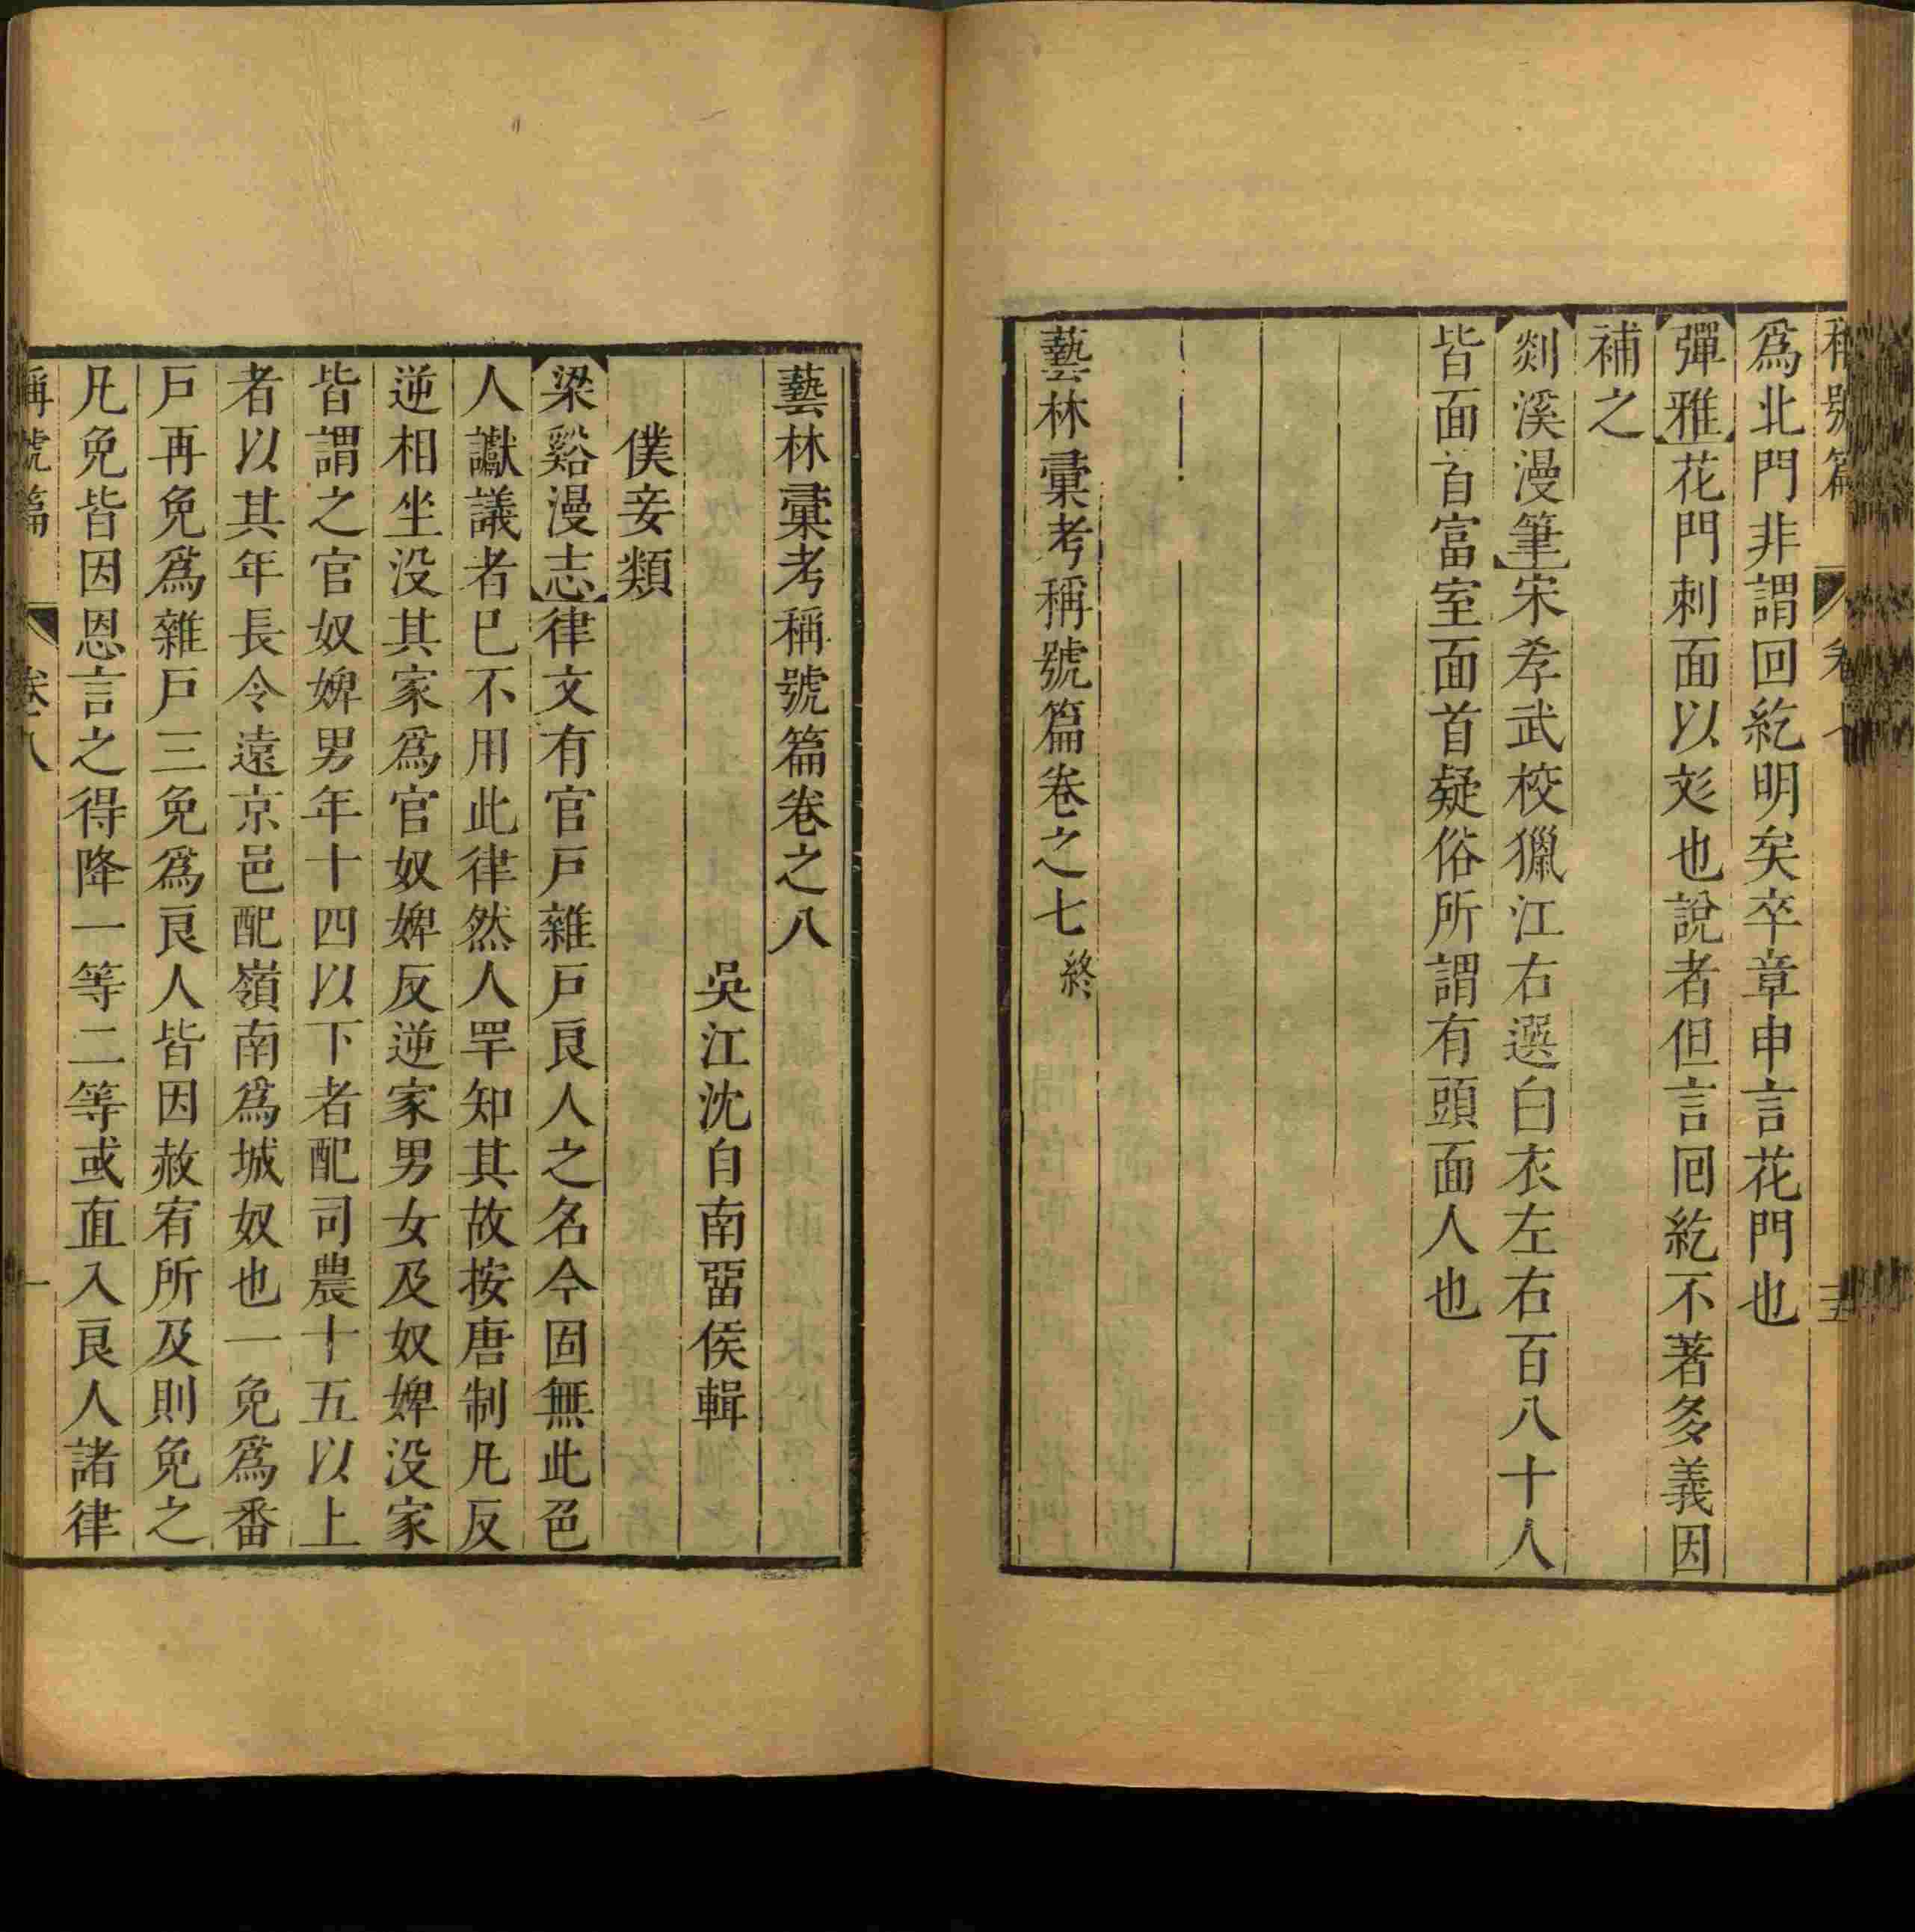 爲北門非謂回紇明矣卒章申言花門也
彈雅花門刺面以彣也說者但言回紇不著多義因
補之
剡溪漫筆宋孝武校獵江右選白衣左右百八十人
皆面首富室面首疑俗所謂有頭面人也
藝林彙考稱號篇卷之七終
藝林彙考稱號篇卷之八
吳江沈自南畱侯輯
僕妾類
梁谿漫志律文有官戶雜戶良人之名今固無此色
人讞議者已不用此律然人罕知其故按唐制凡反
逆相坐没其家爲官奴婢反逆家男女及奴婢没家
皆謂之官奴婢男年十四以下者配司農十五以上
者以其年長令遠京邑配嶺南爲城奴也一免爲番
戶再免爲雜戶三免爲良人皆因赦宥所及則免之
凡免皆因恩言之得降一等二等或直入良人諸律
稱號篇 卷八 一